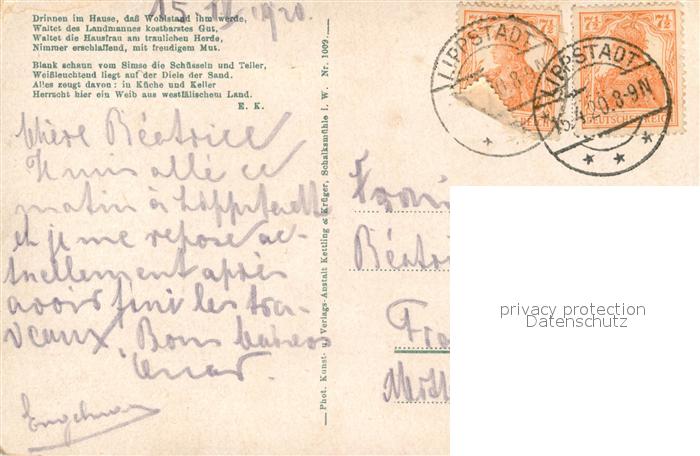 15. IV 1920
Drinnen im Hause, daß Wohlstand ihm werde,
Waltet des Landmannes kostbarstes Gut,
Waltet die Hausfrau am traulichen Herde,
Nimmer erschlaffend, mit freudigem Mut.
Blank schaun vom Simse die Schüsseln und Teller,
Weißleuchtend liegt auf der Diele der Sand.
Alles zeugt davon: in Küche und Keller
Herrscht hier ein Weib aus westfälischem Land.
E. K.
Chère Béatrice
Je suis allé ce
matin à Lippstadt
et je me repose ac-
tuellement après
avoir fini les tra-
veaux. Bons baisers
Engelmann
Phot. Kunst- u. Verlags-Anstalt Kettling & Krüger, Schalksmühle i. W. Nr. 1009.
7½ 7½
7½ 7½
DEUTSCHES REICH
LIPPSTADT
LIPPSTADT
15.4.20.8-9N
Béatri
privacy protection
Datenschutz